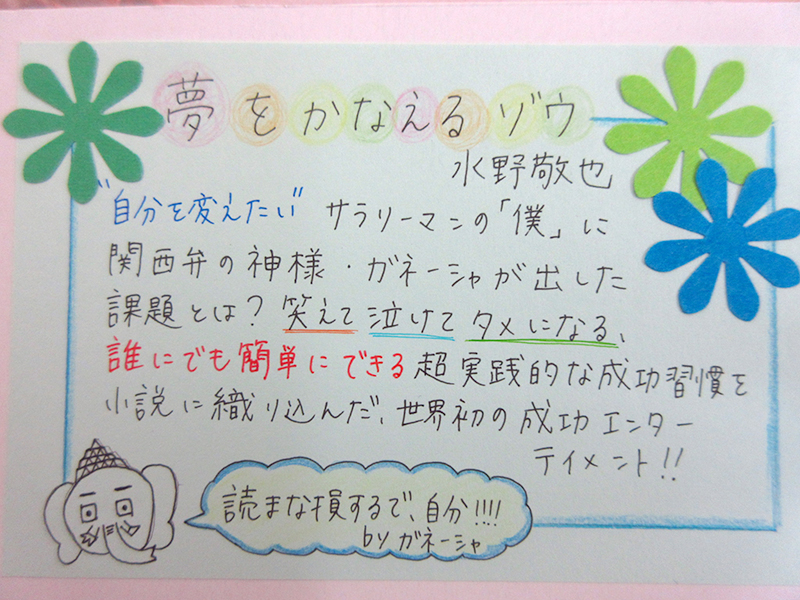 夢をかなえるゾウ
水野敬也
"自分を変えたい" サラリーマンの「僕」に
関西弁の神様・ガネーシャが出した
課題とは?笑えて泣けてタメになる、
誰にでも簡単にできる超実践的な成功習慣を
小説に織り込んだ、世界初の成功エンター
テイメント!!
読まな損するで、自分!!!!
by ガネーシャ